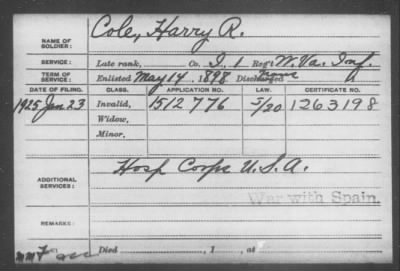 NAME OF SOLDIER: Cole, Harry R.
SERVICE: Late rank, Co. I. 1 Reg't W. Va. Inf.
TERM OF SERVICE: Enlisted May 14. 1898 Discharged
DATE OF FILING. CLASS. APPLICATION NO. LAW. CERTIFICATE NO.
1925 Jan 23 Invalid, 1512776 5/20 1263198
Widow,
Minor,
ADDITIONAL SERVICES: Hosp Corps U.S.A.
War with Spain.
REMARKS:
Died , 1 , at